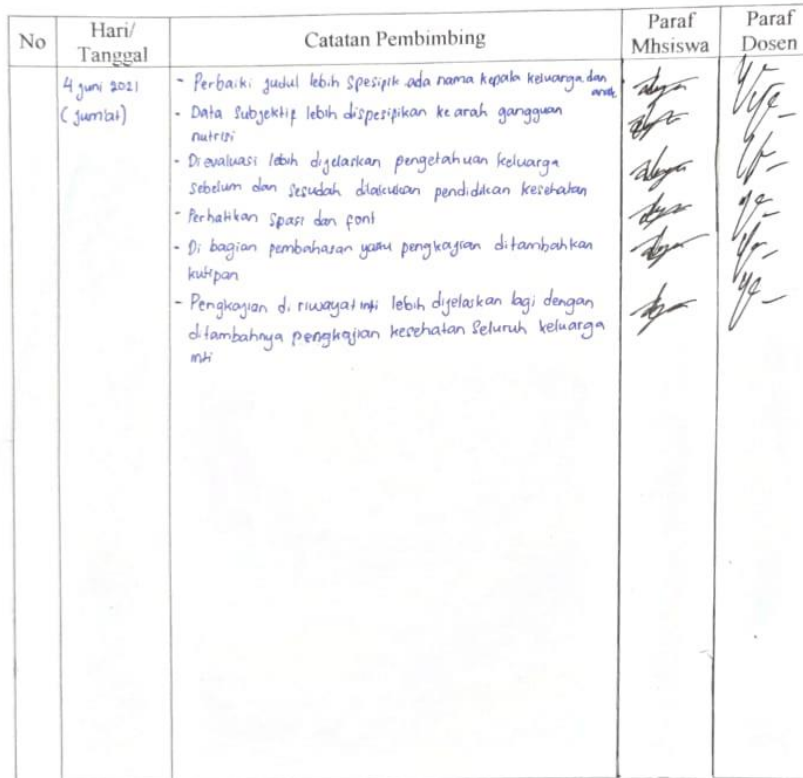 No
Hari/
Tanggal
Catatan Pembimbing
Paraf
Mhsiswa
Paraf
Dosen
4 Juni 2021
(Jumbat)
- Perbaiki judul lebih spesipik ada nama kepala keluarga dan
anak
- Data Subjektif lebih dispesipikan ke arah gangguan
nutrisi
- Di evaluasi lebih dijelaskan pengetahuan keluarga
sebelum dan sesudah dilakukan pendidikan kesehatan
- Perhatikan spasi dan font
- Di bagian pembahasan yaitu pengkajian ditambahkan
kutipan
- Pengkajian di riwayat inti lebih dijelaskan lagi dengan
ditambahnya pengkajian kesehatan seluruh keluarga
inti